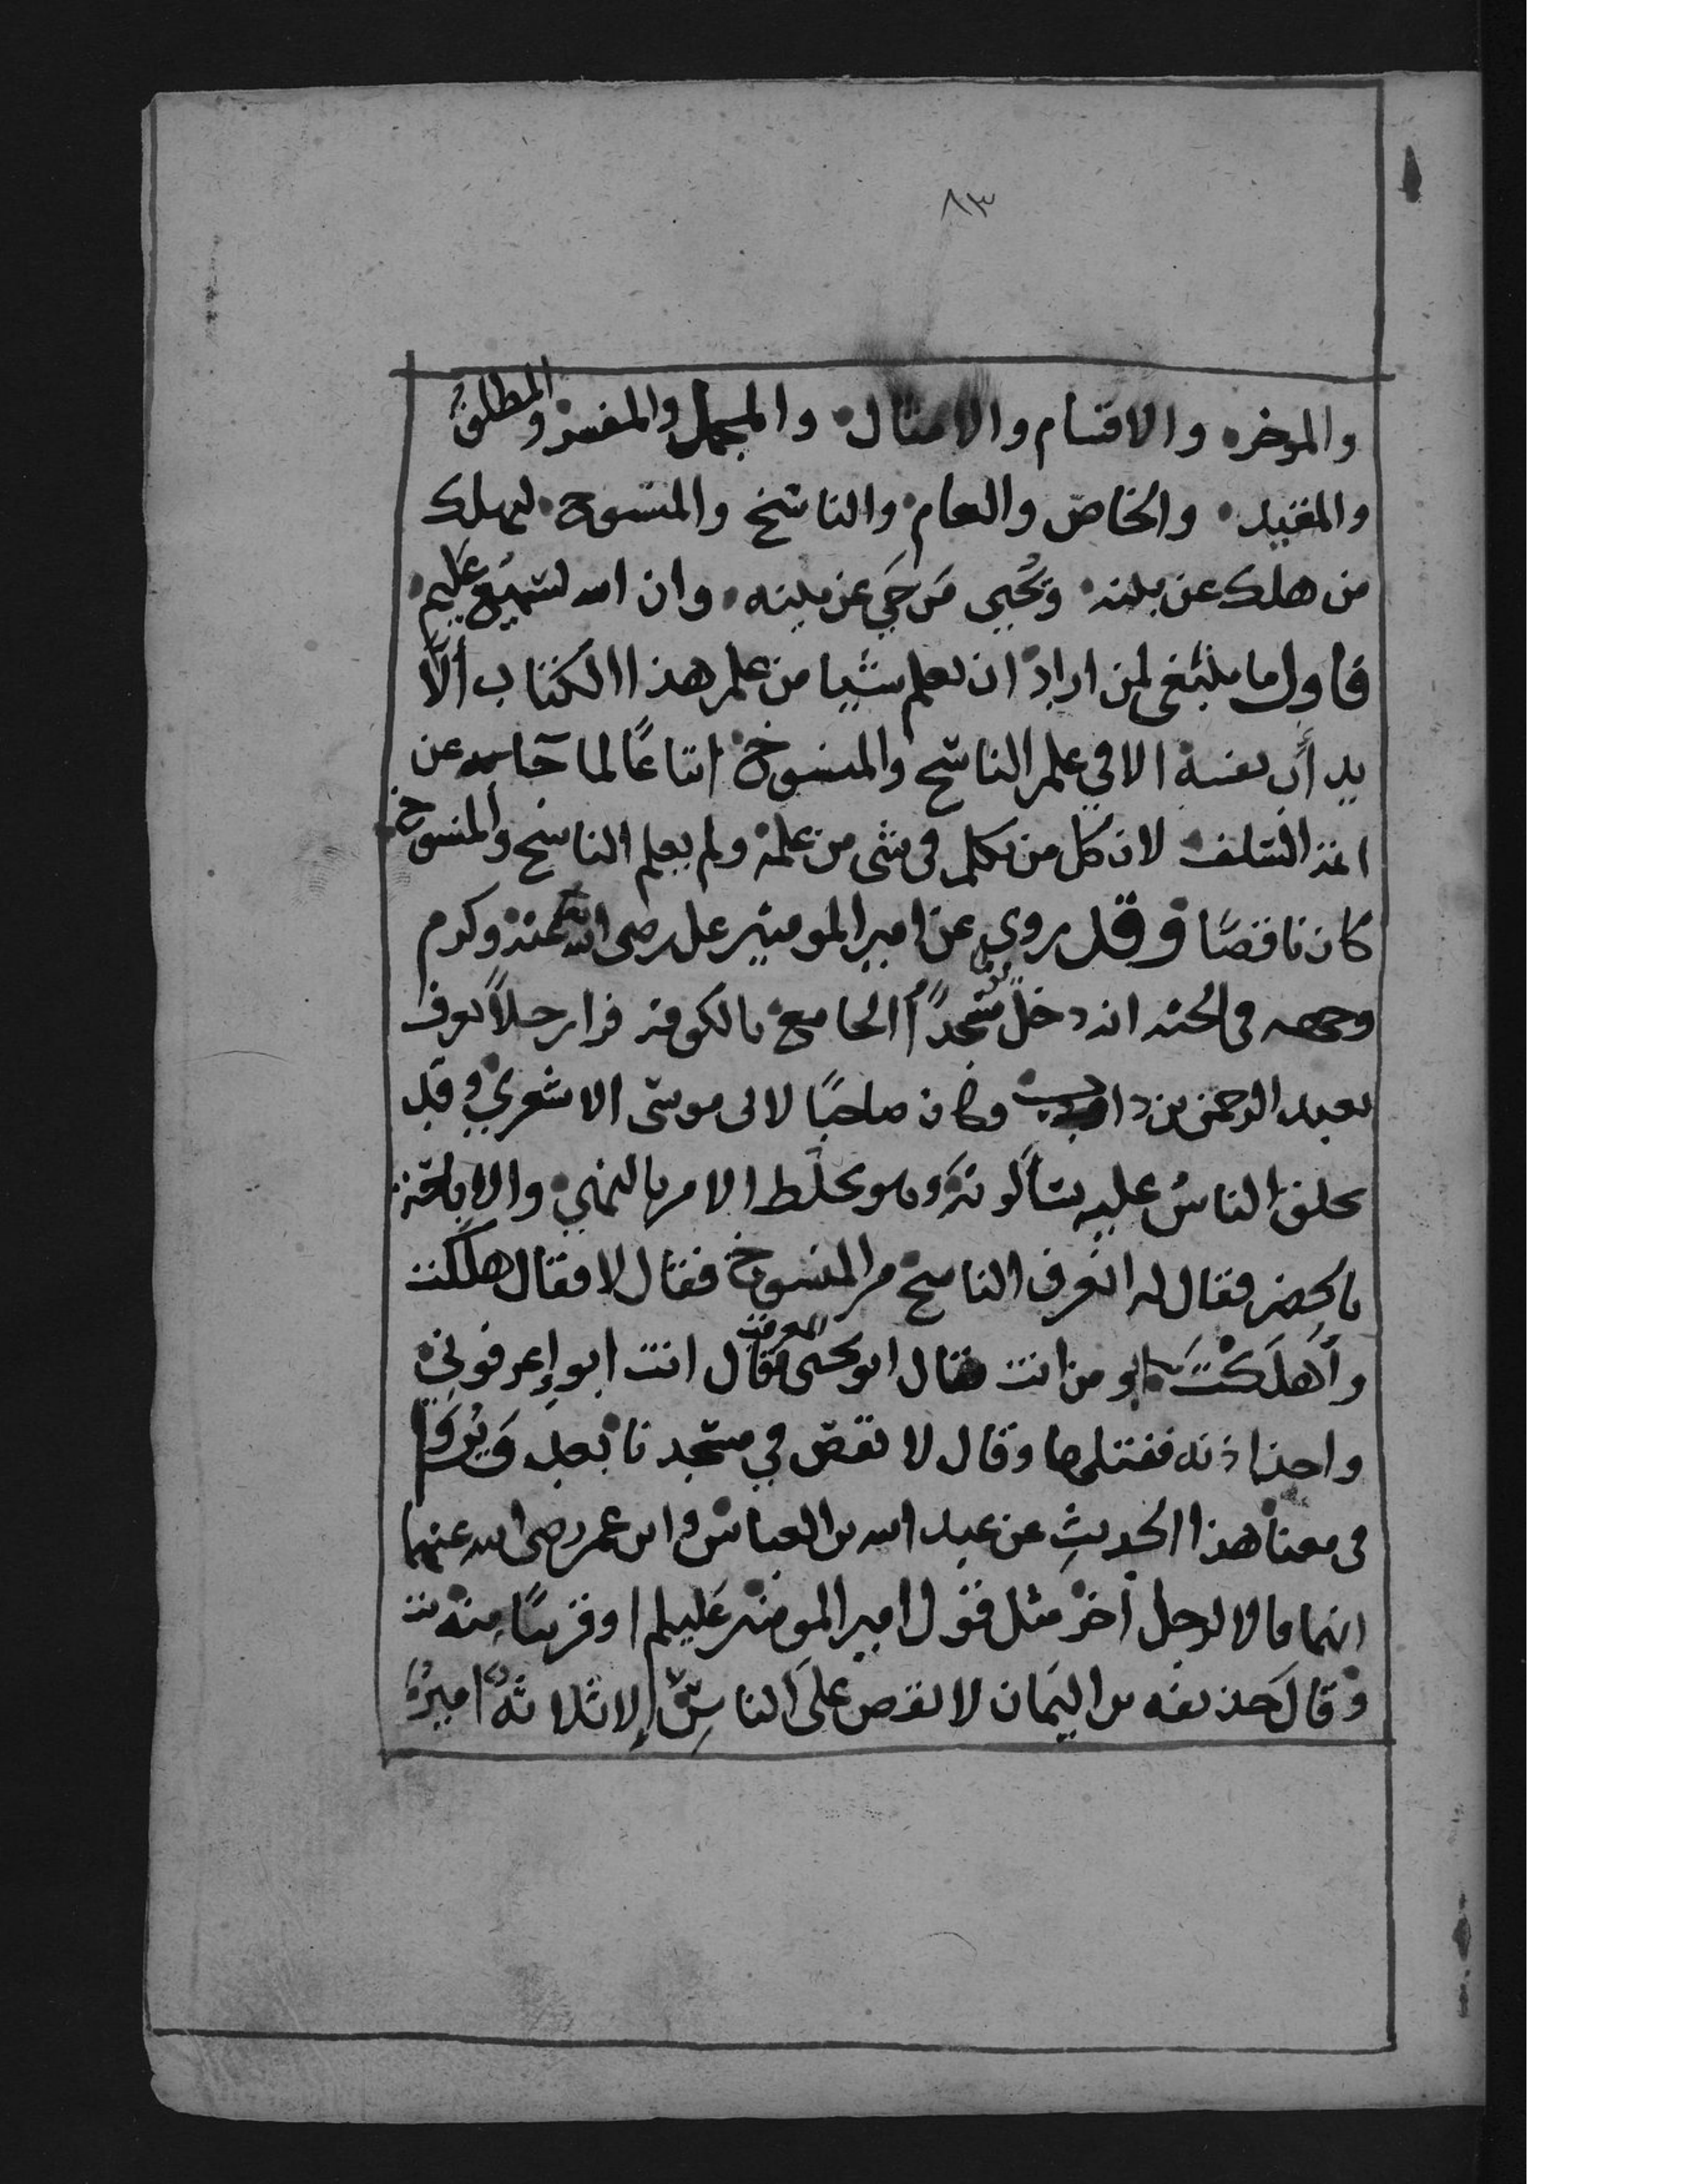 ٨٣
والموخره والاقسام والامثال والمجمل والمفسر والمطلق
والمقيد والخاص والعام والناسخ والمنسوخ ليهلك
من هلك عن بينه ويحيى من حي عن بينه وان الله لسميع عليم
فاول ما ينبغي لمن اراد ان يعلم شيا من علم هذا الكتاب ألا
يدأب نفسه الا في علم الناسخ والمنسوخ اتباعًا لما جا به عن
ايمة السلف لان كل من تكلم في شي من علمه ولم يعلم الناسخ والمنسوخ
كان ناقصًا وقد روي عن امير المومنين علي رضي الله عنه وكرم
وجهه في الجنه انه دخل مسجدًا الجامع بالكوفه فرا رجلاً يعرف
بعبد الرحمن بن داب وكان صاحبًا لابي موسى الاشعري وقد
تحلق الناس عليه يسألونه وهو يخلط الامر بالنهي والاباحة
بالحضر فقال له اتعرف الناسخ من المنسوخ فقال لا فقال هلكت
وأهلكت ابو من انت فقال ابو يحيى فقال انت ابو إعرفوني
واخذ اذنه ففتلها وقال لا تقص في مسجدنا بعد ويروا
في معنا هذا الحديث عن عبد الله بن العباس وابن عمر رضي الله عنهما
انهما قالا لرجل أخر مثل قول امير المومنين علي او قريبًا منه
وقال حذيفه بن اليمان لا يقص على الناس إلا ثلاثة امير